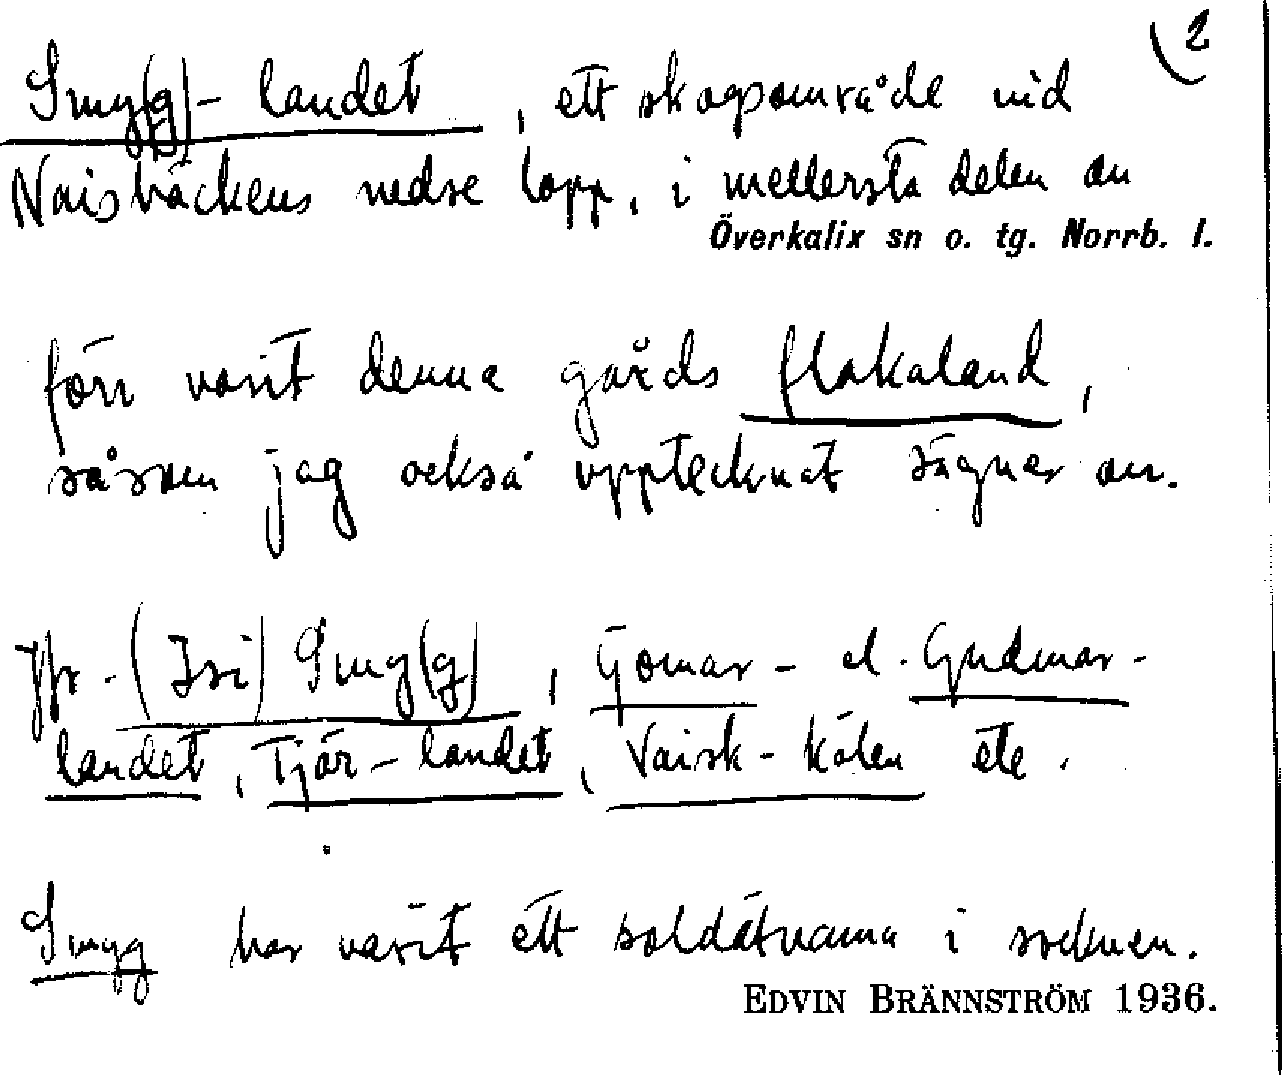 2
Smyg(g)-landet, ett skogsområde vid
Naisbäckens nedre lopp, i mellersta delen av
Överkalix sn o. tg. Norrb. l.
förr varit denna gårds flakaland,
såsom jag också upptecknat sägner om.
Jfr. (Isi) Smyg(g), Gomar- el. Gudmar-
landet, Tjär-landet, Vaisk-kölen etc.
Smygg har varit ett soldatnamn i socknen.
EDVIN BRÄNNSTRÖM 1936.